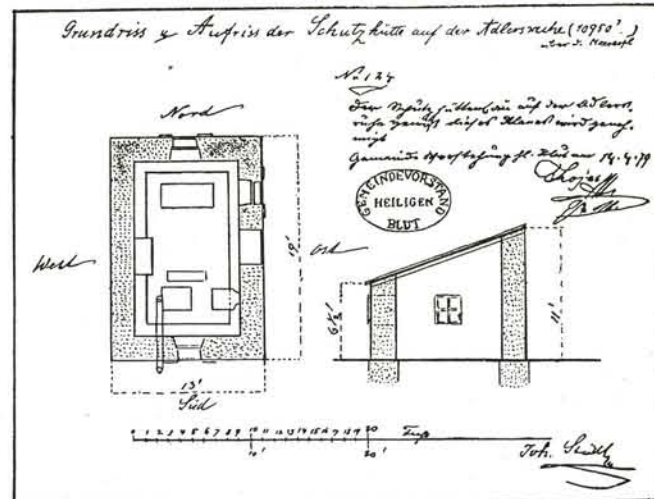 Grundriss u Aufriss der Schutzhütte auf der Adlersruhe (10950'.)
über d. Meeresfl
No 124
Der Schutzhüttenbau auf der Adlers
ruhe gemäß dieses Planes wird geneh.
migt
Gemeinde Vorstehung Hl. Blut am 14.4.79
GEMEINDEVORSTAND
HEILIGEN
BLUT
Nord
West
Ost
19'
13'
Süd
6½'
11'
0 1 2 3 4 5 6 7 8 9 10 11 12 13 14 15 16 17 18 19 20 Fuß
10' 20'
Joh.